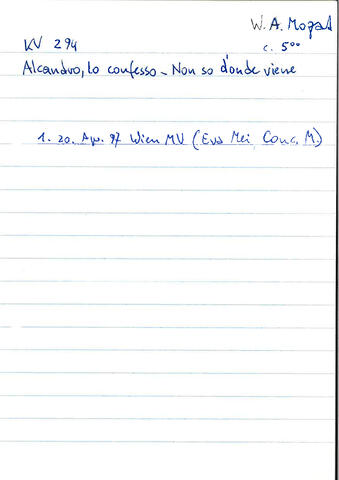 W. A. Mozart
KV 294
c. 5⁰⁰
Alcandro, lo confesso - Non so d'onde viene
1. 20. Apr. 97 Wien MV (Eva Mei, Conc. M.)